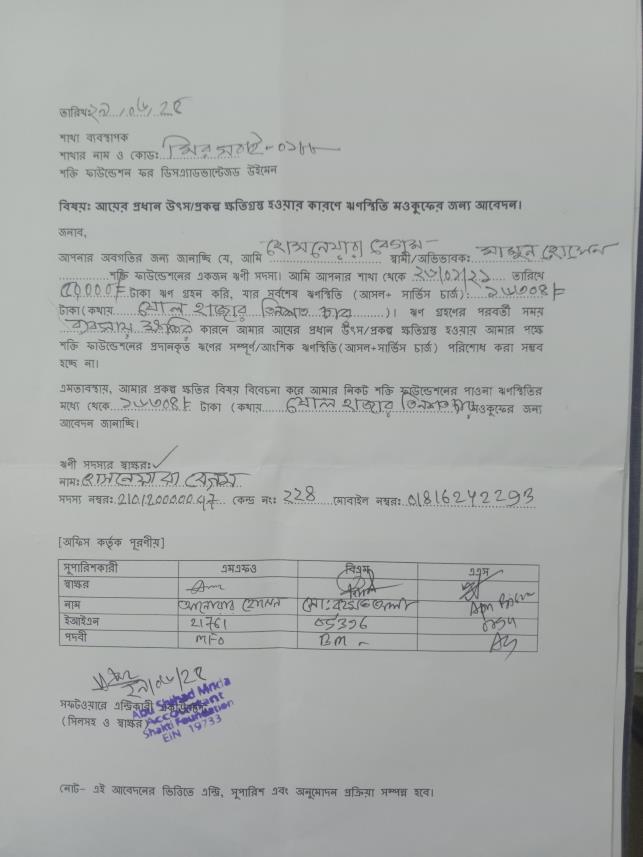 তারিখঃ২৯/০৬/২৫
শাখা ব্যবস্থাপক
শাখার নাম ও কোড: মিরসরাই-০১৮৮
শক্তি ফাউন্ডেশন ফর ডিসএ্যাডভান্টেজড উইমেন
বিষয়: আয়ের প্রধান উৎস/প্রকল্প ক্ষতিগ্রস্ত হওয়ার কারণে ঋণস্থিতি মওকুফের জন্য আবেদন।
জনাব,
আপনার অবগতির জন্য জানাচ্ছি যে, আমি হোসনেয়ারা বেগম স্বামী/অভিভাবক: মামুন হোসেন
শক্তি ফাউন্ডেশনের একজন ঋণী সদস্য। আমি আপনার শাখা থেকে ২৮/০২/২১ তারিখে
৫০০০০/= টাকা ঋণ গ্রহন করি, যার সর্বশেষ ঋণস্থিতি (আসল+ সার্ভিস চার্জ): ১৬৩০৪/=
টাকা(কথায় ষোল হাজার তিনশত চার)। ঋণ গ্রহণের পরবর্তী সময়
ব্যবসায় কারনে আমার আয়ের প্রধান উৎস/প্রকল্প ক্ষতিগ্রস্ত হওয়ায় আমার পক্ষে
শক্তি ফাউন্ডেশনের প্রদানকৃত ঋণের সম্পূর্ণ/আংশিক ঋণস্থিতি(আসল+সার্ভিস চার্জ) পরিশোধ করা সম্ভব
হচ্ছে না।
এমতাবস্থায়, আমার প্রকল্প ক্ষতির বিষয় বিবেচনা করে আমার নিকট শক্তি ফাউন্ডেশনের পাওনা ঋণস্থিতির
মধ্যে থেকে ১৬৩০৪/= টাকা (কথায় ষোল হাজার তিনশত চার মওকুফের জন্য
আবেদন জানাচ্ছি।
ঋণী সদস্যর স্বাক্ষর:
নাম: হোসনেয়ারা বেগম
সদস্য নম্বর: 210120000097 কেন্দ্র নং: 228 মোবাইল নম্বর: 01816242293
[অফিস কর্তৃক পূরণীয়]
সুপারিশকারী এমএফও বিএম এএম
স্বাক্ষর
নাম আনোয়ার হোসেন মো: রহমত আলী
ইআইএন 21761 05396
পদবী MFO BM AM
২৯/০৬/২৫
সফটওয়ারে এন্ট্রিকারী
(সিলসহ ও স্বাক্ষর)
Abu Shahad Mridia
Accountant
Shakti Foundation
EIN 19733
নোট- এই আবেদনের ভিত্তিতে এন্ট্রি, সুপারিশ এবং অনুমোদন প্রক্রিয়া সম্পন্ন হবে।